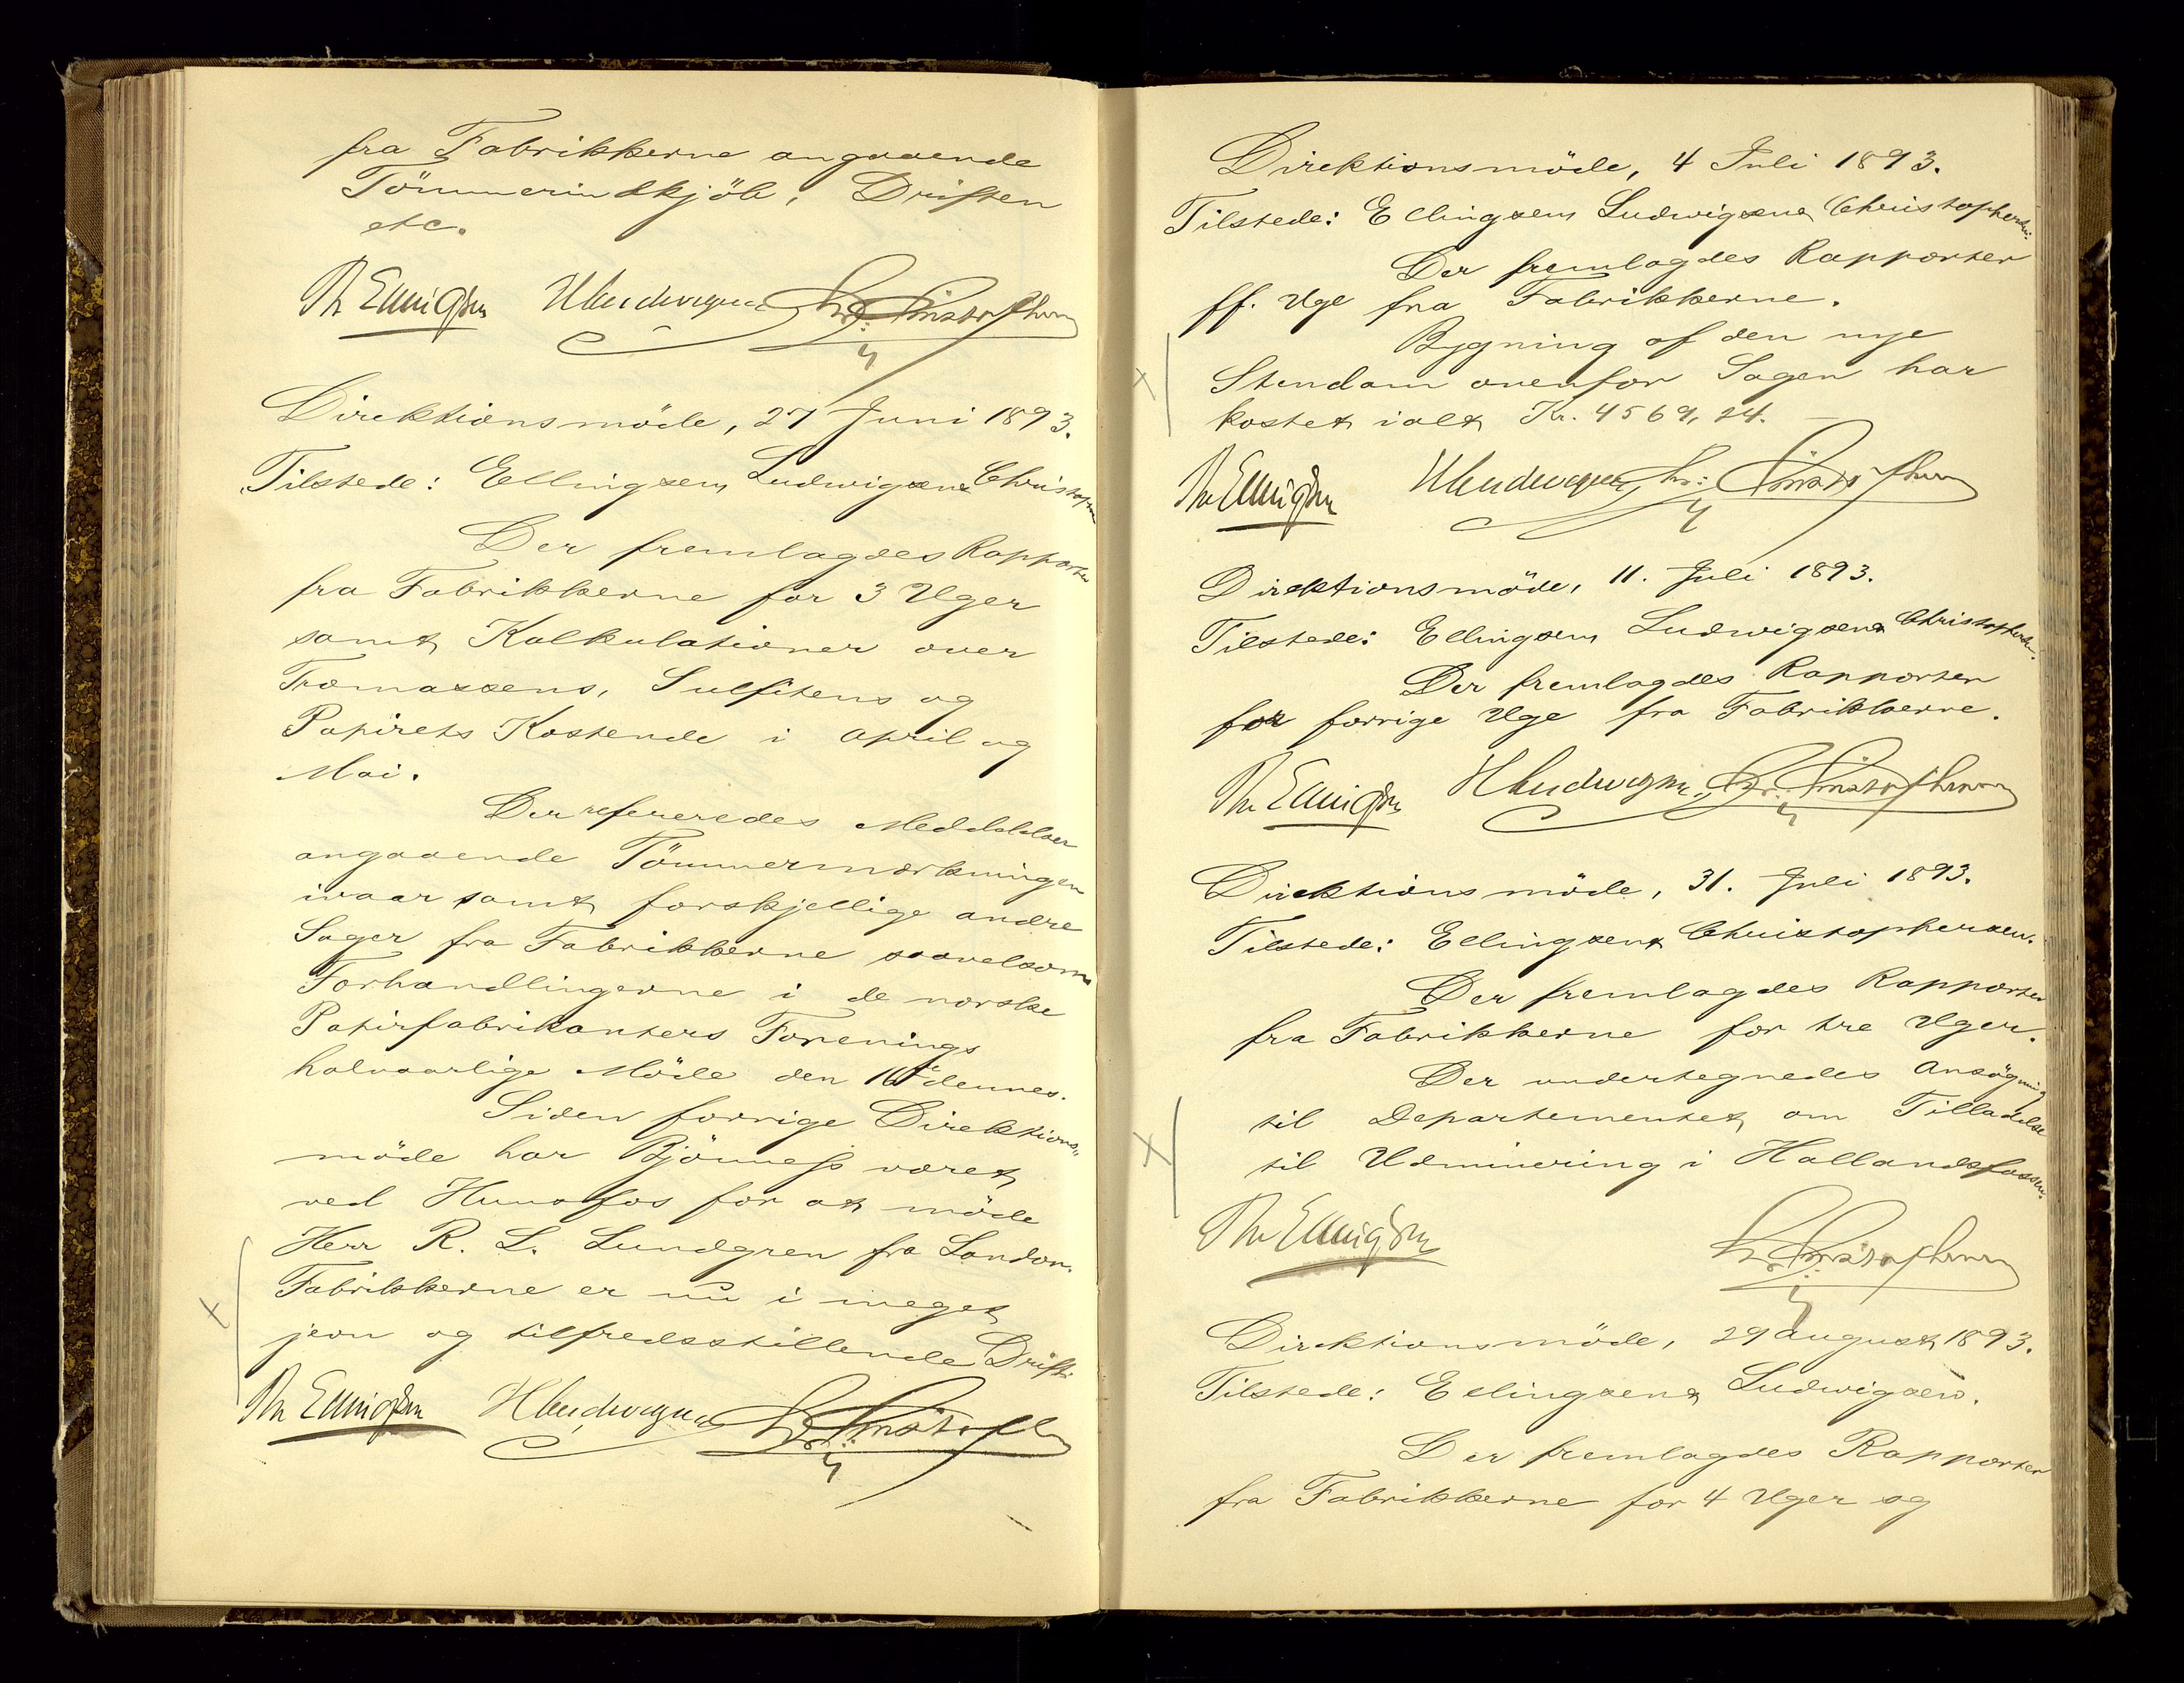 fra Fabrikkerne angaaende
Tömmerindkjöb, Driften
etc.
Th Ellingsen HLudwigsen Chr. Christophersen
Direktionsmöde, 27 Juni 1893.
Tilstede: Ellingsen, Ludwigsen & Christophersen
Der fremlagdes Rapporter
fra Fabrikkerne for 3 Uger
samt Kalkulationer over
Træmassens, Sulfitens og
Papirets Kostende i April og
Mai.
Der refereredes Meddelelser
angaaende Tömmermærkningen
iaar samt forskjellige andre
Sager fra Fabrikkerne saavelsom
Forhandlingerne i de norske
Papirfabrikanters Forenings
halvaarlige Möde den 16de dennes.
Siden forrige Direktions"
möde har Bjönness været
ved Hunsfos for at möde
Herr R. L. Lundgren fra London.
Fabrikkerne er nu i meget
jevn og tilfredsstillende Drift.
Th Ellingsen HLudwigsen Chr. Christophersen
Direktionsmöde, 4 Juli 1893.
Tilstede: Ellingsen, Ludwigsen & Christophersen.
Der fremlagdes Rapporter
ff. Uge fra Fabrikkerne.
Bygning af den nye
Stendam ovenfor Sagen har
kostet ialt Kr. 4569,24. —
Th Ellingsen HLudwigsen Chr. Christophersen
Direktionsmöde, 11. Juli 1893.
Tilstede: Ellingsen, Ludwigsen & Christophersen.
Der fremlagdes Rapporter
for forrige Uge fra Fabrikkerne.
Th Ellingsen HLudwigsen Chr. Christophersen
Direktionsmöde, 31. Juli 1893.
Tilstede: Ellingsen & Christophersen.
Der fremlagdes Rapporter
fra Fabrikkerne for tre Uger.
Der undertegnedes Ansögning
til Departementet om Tilladelse
til Udminering i Hallandsfossen.
Th Ellingsen Chr. Christophersen
Direktionsmöde, 29 August 1893.
Tilstede: Ellingsen & Ludwigsen.
Der fremlagdes Rapporter
fra Fabrikkerne for 4 Uger og